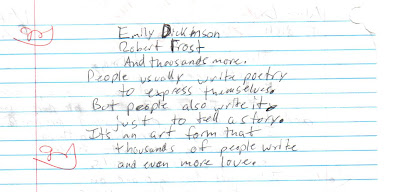 Emily Dickinson
Robert Frost
And thousands more.
People usually write poetry
to express themselves.
But people also write it
just to tell a story.
It's an art form that
thousands of people write
and even more love.